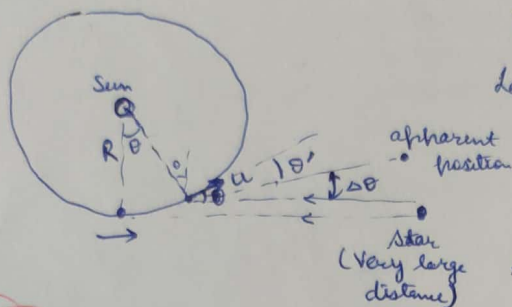 Sun
Le
R
θ
θ
u
θ
θ'
Δθ
apparent
position
Star
(Very large
distance)